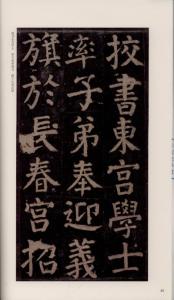 挍書東宫學士
率子弟奉迎義
旗於長春宫招